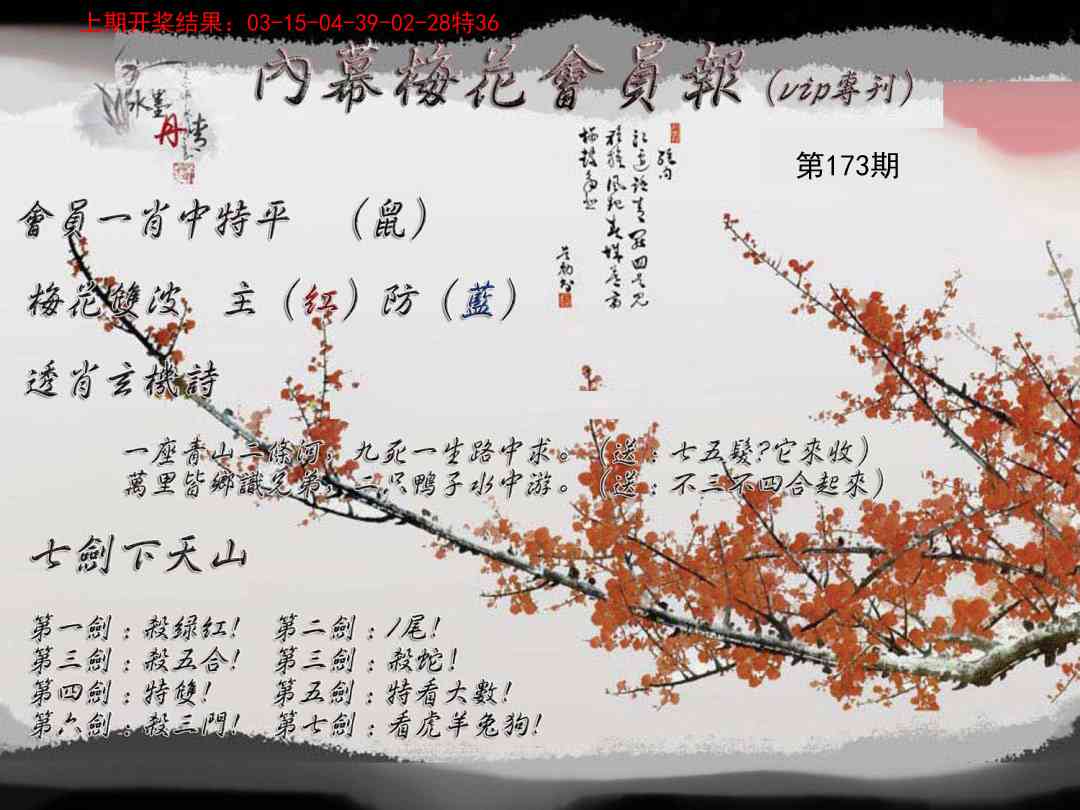 上期开奖结果：03-15-04-39-02-28特36
內幕梅花會員報（vip專刊）
水墨
丹青
第173期
會員一肖中特平　（鼠）
梅花雙波　主（紅）防（藍）
透肖玄機詩
一座青山二條河，九死一生路中求。（送：七五髮?它來收）
萬里皆鄉識兄弟，二只鴨子水中游。（送：不三不四合起來）
七劍下天山
第一劍：殺绿红!　第二劍：1尾!
第三劍：殺五合!　第三劍：殺蛇!
第四劍：特雙!　第五劍：特看大數!
第六劍：殺三門!　第七劍：看虎羊兔狗!